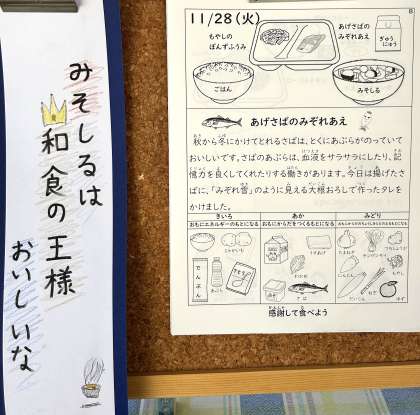 みそしるは
和食の王様
おいしいな
8
11/28(火)
もやしの
ぽんずふうみ
あげさばの
みぞれあえ
ぎゅう
にゅう
ごはん
みそしる
あげさばのみぞれあえ
秋から冬にかけてとれるさばは、とくにあぶらがのっていて
おいしいです。さばのあぶらは、血液をサラサラにしたり、記
憶力を良くしてくれたりする働きがあります。今日は揚げたさ
ばに、「みぞれ雪」のように見える大根おろしで作ったタレを
かけました。
きいろ
あか
みどり
おもにエネルギーのもとになる
おもにからだをつくるもとになる
でんぷん
さば
だいこん
ねぎ
ゆず
もやし
にんじん
感謝して食べよう